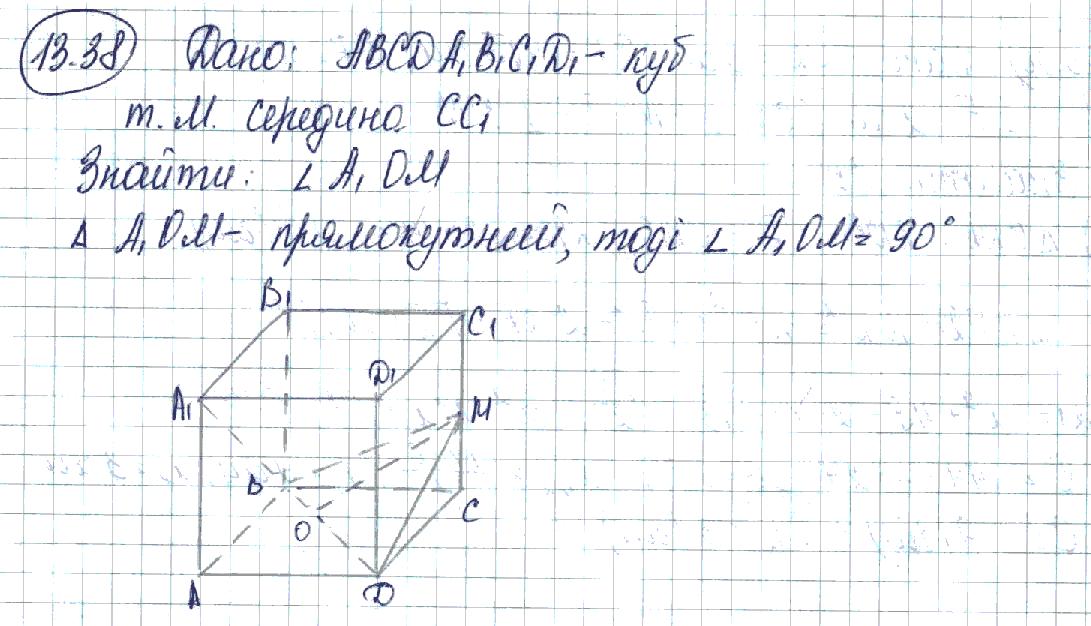 13.38 Дано: ABCDA₁B₁C₁D₁ - куб
т. М. середина CC₁
Знайти: ∠ A₁OM
Δ A₁OM - прямокутний, тоді ∠ A₁OM = 90°
B₁
C₁
D₁
A₁
M
B
C
O
A
D